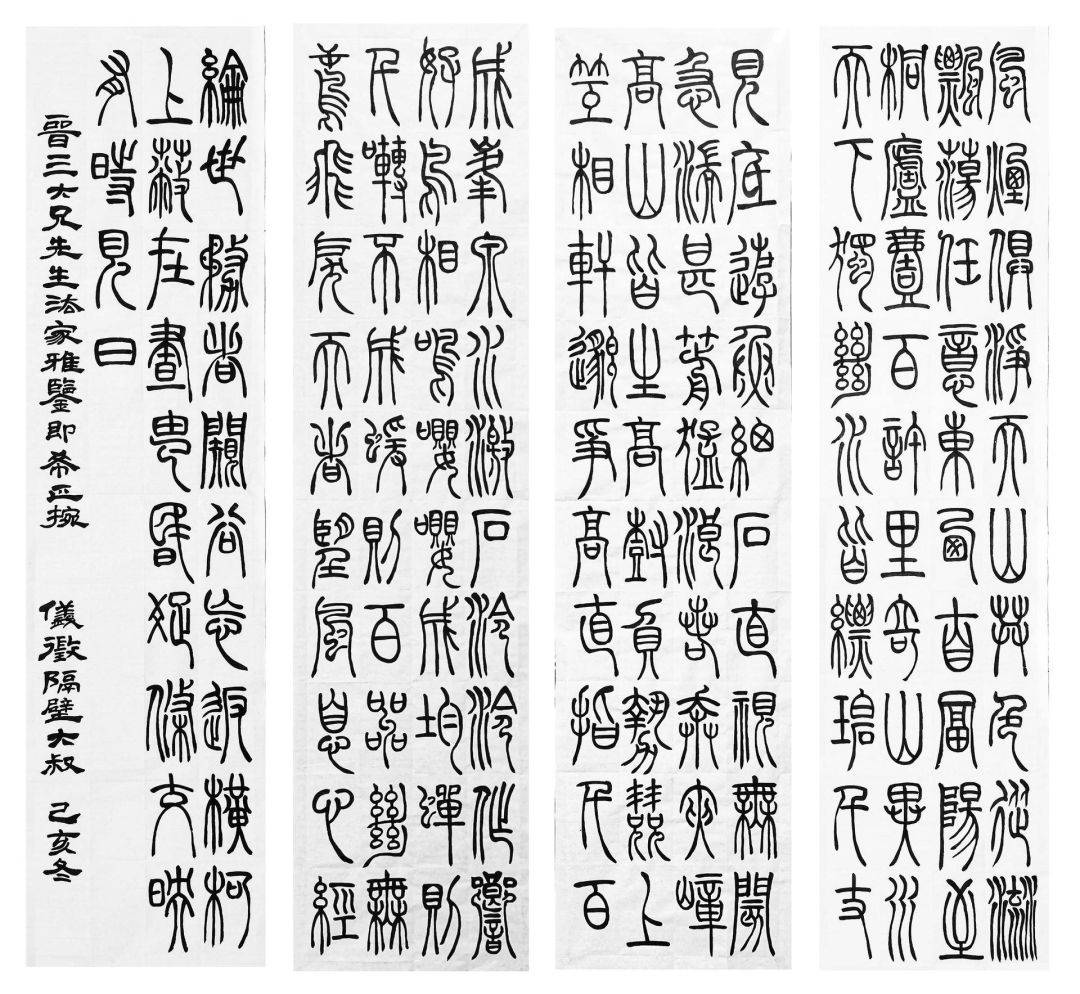 風煙俱淨天山共色從流
飄蕩任意東西自富陽至
桐廬壹百許里奇山異水
天下獨絕水皆縹碧千丈
見底遊魚細石直視無閡
急湍甚箭猛浪若奔夾嶂
高山皆生高樹負勢競上
互相軒邈爭高直指千百
成峯泉水激石泠泠作響
好鳥相鳴嚶嚶成韵蟬則
千囀不成猨則百嘂絕無
鳶飛戾天者望風息心經
綸世務者闚谷忘返橫柯
上蔽在晝猶昏疏條交映
有時見日
晉三大兄先生法家雅鑒即希正捥 儀徵隔壁大叔 己亥冬